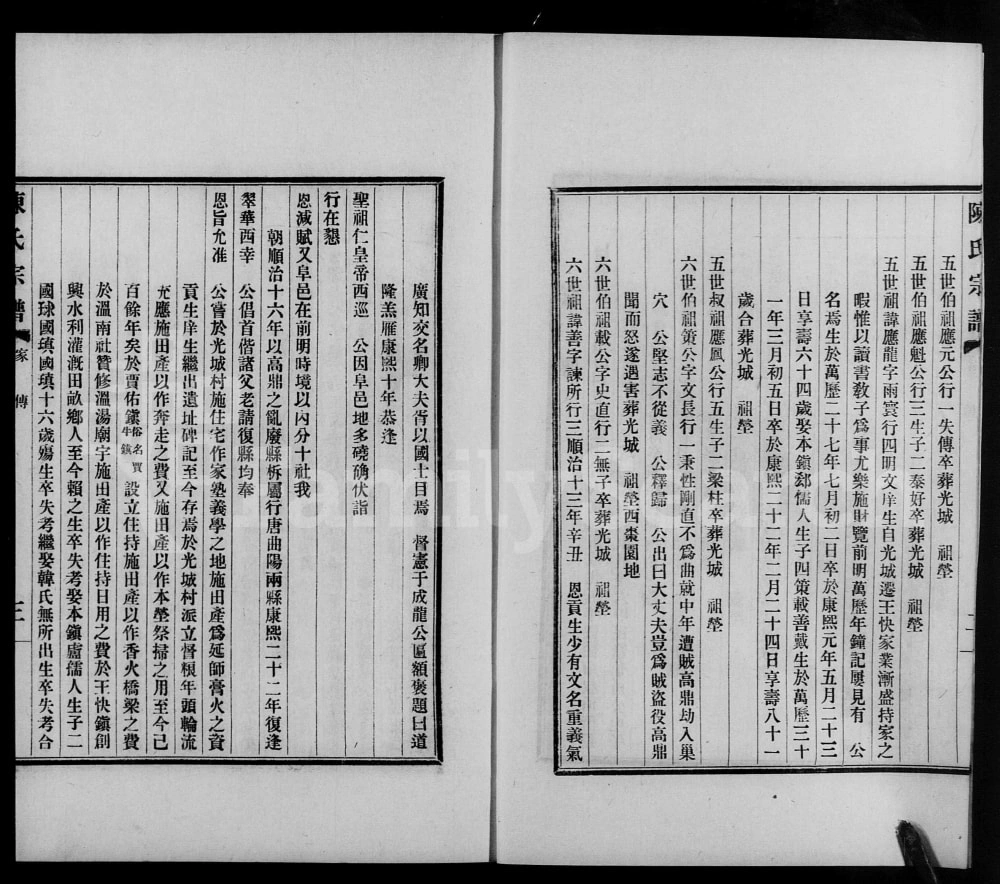 陳氏宗譜
二
五世伯祖應元公行一失傳卒葬光城 祖塋
五世伯祖應魁公行三生子二泰好卒葬光城 祖塋
五世祖諱應龍字雨寰行四明文庠生自光城遷王快家業漸盛持家之
暇惟以讀書敎子爲事尤樂施財覽前明萬歷年鐘記屢見有 公
名焉生於萬歷二十七年七月初二日卒於康熙元年五月二十三
日享壽六十四歲娶本鎭郄儒人生子四策載善戴生於萬歷三十
一年三月初五日卒於康熙二十二年二月二十四日享壽八十一
歲合葬光城 祖塋
五世叔祖應鳳公行五生子二梁柱卒葬光城 祖塋
六世伯祖策公字文長行一秉性剛直不爲曲就中年遭賊高鼎劫入巢
穴 公堅志不從義 公釋歸 公出曰大丈夫豈爲賊盜役高鼎
聞而怒遂遇害葬光城 祖塋西棗園地
六世伯祖載公字史直行二無子卒葬光城 祖塋
六世祖諱善字諫所行三順治十三年辛丑 恩貢生少有文名重義氣
廣知交名卿大夫胥以國士目焉 督憲于成龍公匾額褒題曰道
隆羔雁康熙十年恭逢
聖祖仁皇帝西巡 公因阜邑地多磽确伏詣
行在懇
恩減賦又阜邑在前明時境以內分十社我
朝順治十六年以高鼎之亂廢縣柝屬行唐曲陽兩縣康熙二十二年復逢
翠華西幸 公倡首偕諸父老請復縣均奉
恩旨允准 公嘗於光城村施住宅作家塾義學之地施田產爲延師膏火之資
貢生庠生繼出遺址碑記至今存焉於光城村派立督根年頭輪流
充應施田產以作奔走之費又施田產以作本塋祭掃之用至今已
百餘年矣於賈佑鎭俗名賈牛鎭設立住持施田產以作香火橋梁之費
於溫南社贊修溫湯廟宇施田產以作住持日用之費於王快鎭創
興水利灌漑田畝鄉人至今賴之生卒失考娶本鎭盧儒人生子二
國球國瑱國瑱十六歲殤生卒失考繼娶韓氏無所出生卒失考合
陳氏宗譜
家傳
三